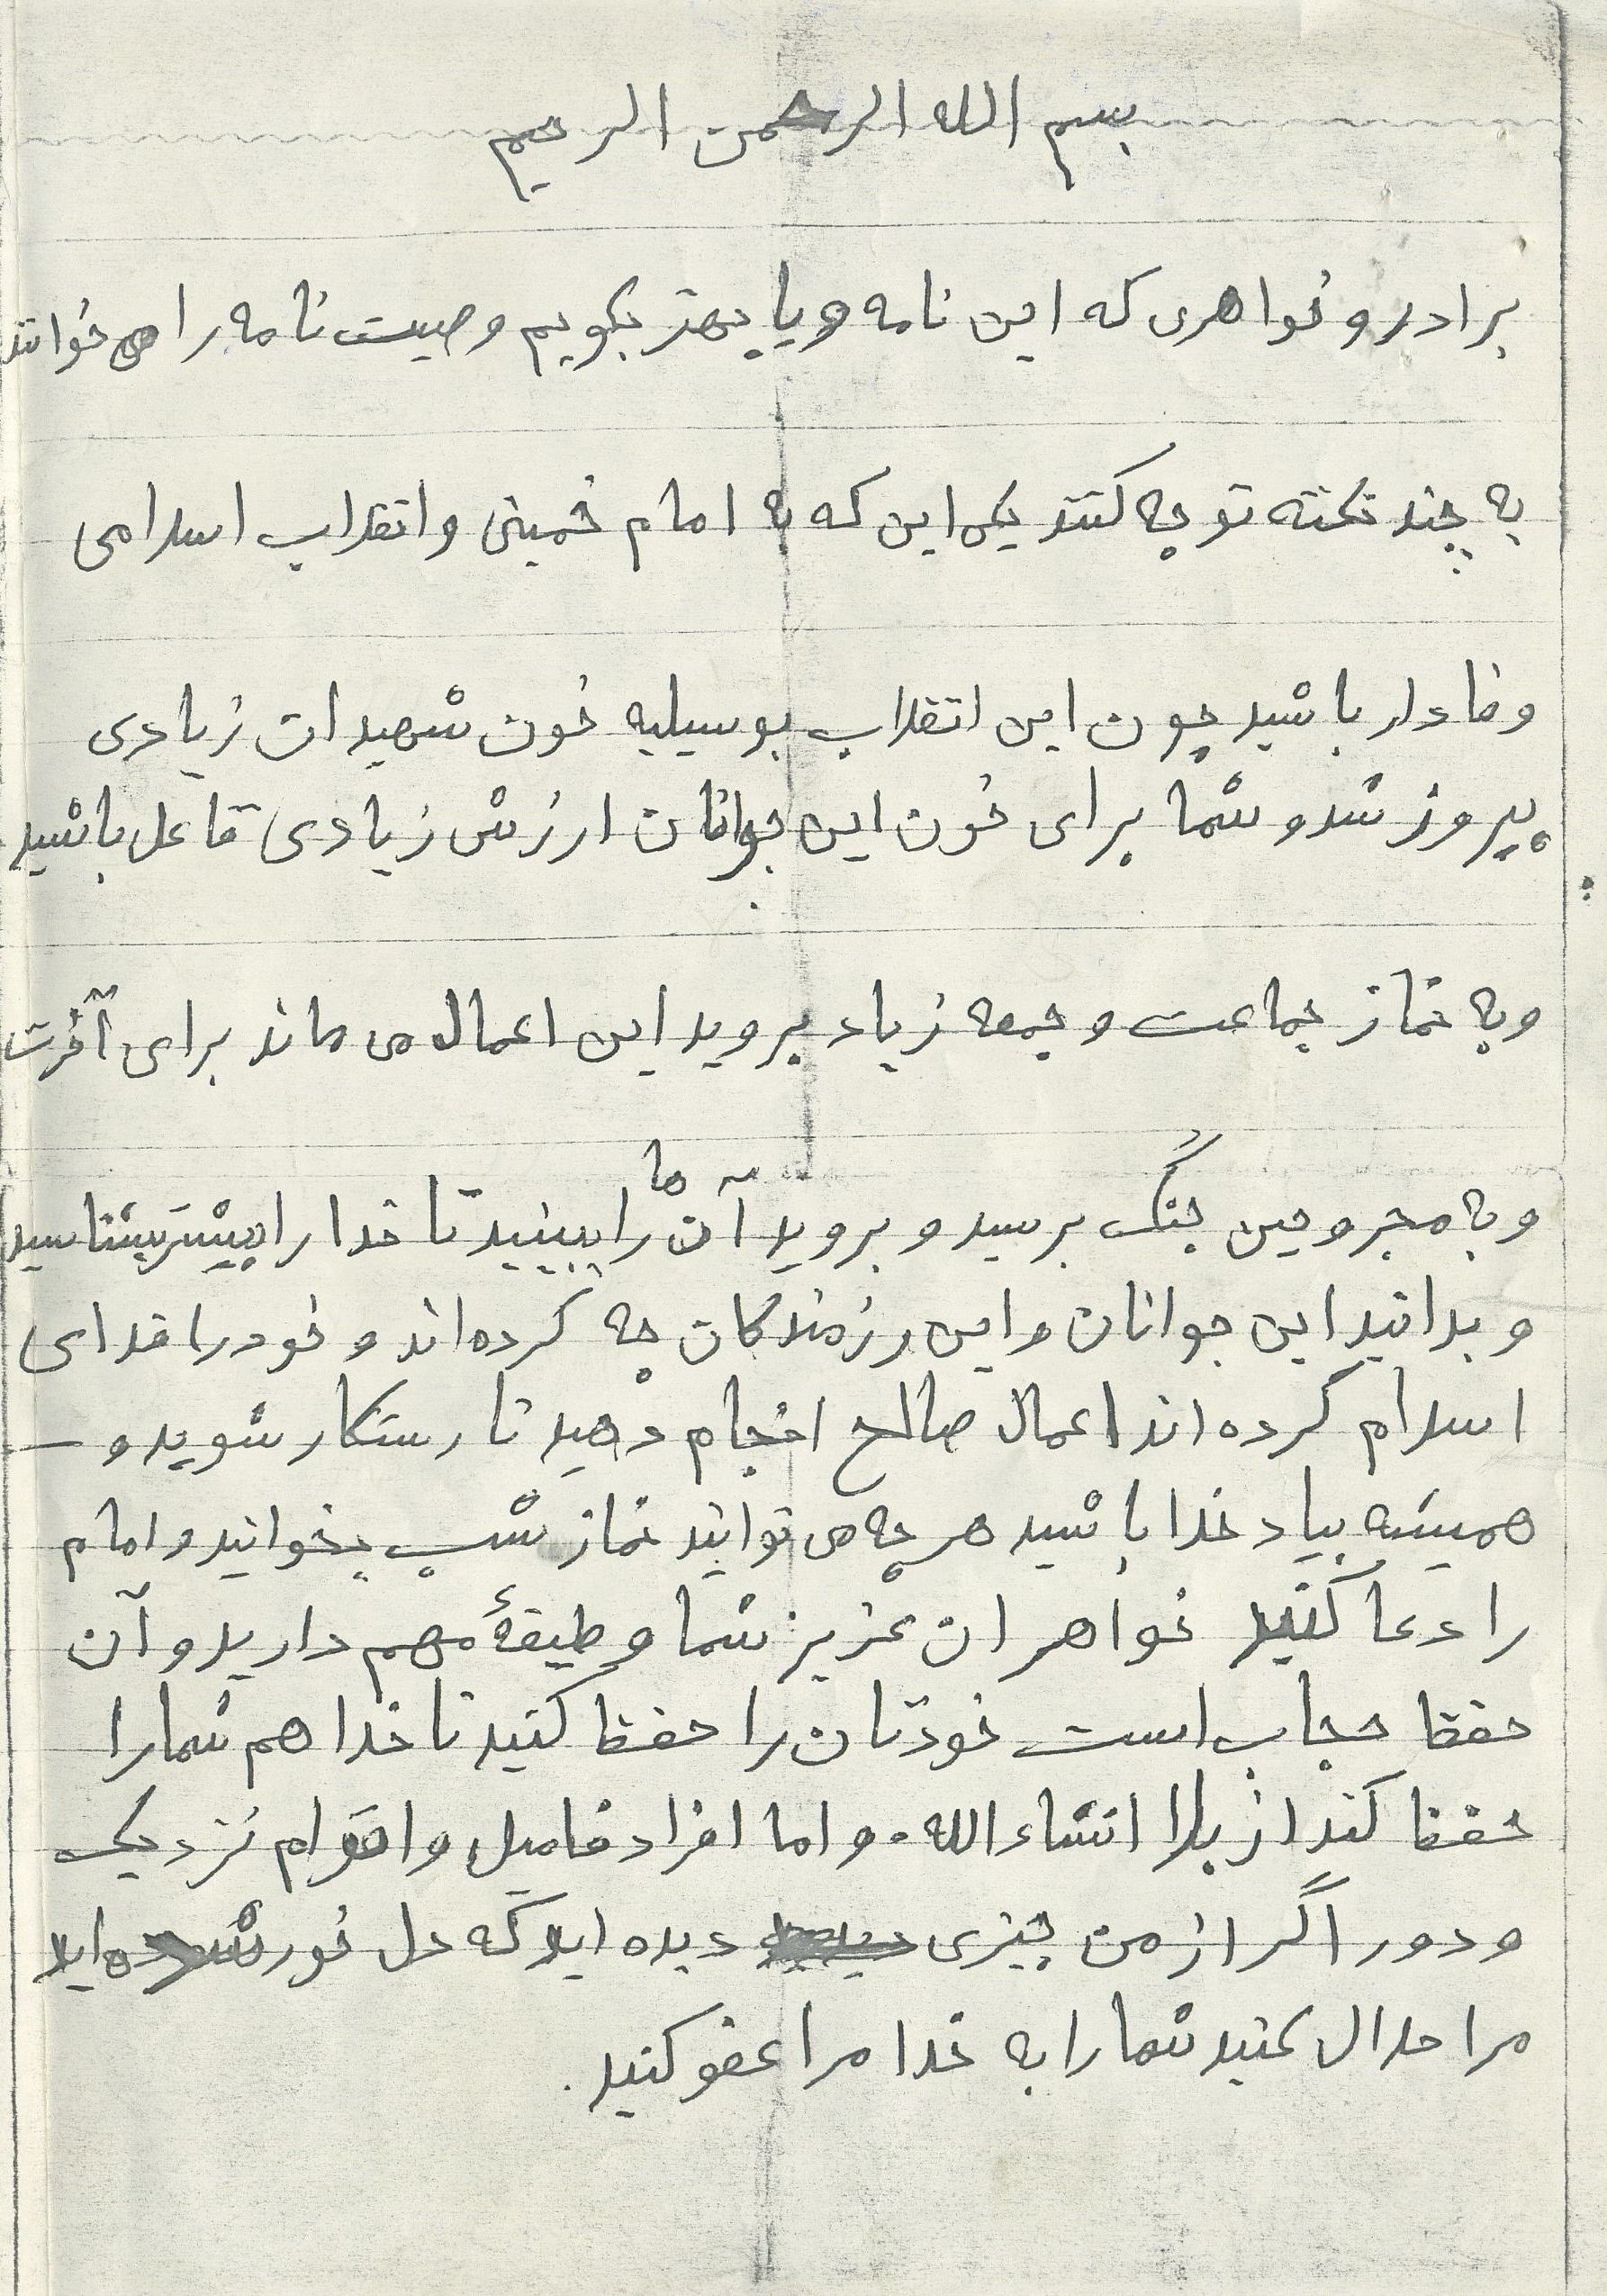 بسم الله الرحمن الرحیم
برادر و خواهری که این نامه و یا بهتر بگویم وصیت نامه را می خوانند
به چند نکته توجه کنند یکی این که به امام خمینی و انقلاب اسلامی
وفادار باشید چون این انقلاب بوسیلیه خون شهیدان زیادی
پیروز شد و شما برای خون این جوانان ارزش زیادی قاعل باشید
و به نماز جماعت و جمعه زیاد بروید این اعمال می ماند برای آخرت
و به مجروحین جنگ برسید و بروید آن ها را ببینید تا خدا را بیشتر بشناسید
و بدانید این جوانان و این رزمندگان چه کرده اند و خود را فدای
اسلام کرده اند اعمال صالح انجام دهید تا رستگار شوید و
همیشه بیاد خدا باشید هر چه می توانید نماز شب بخوانید و امام
را دعا کنید خواهران عزیز شما وظیفهٔ مهم دارید و آن
حفظ حجاب است خودتان را حفظ کنید تا خدا هم شما را
حفظ کند از بلا انشاء الله. و اما افراد فامیل و اقوام نزدیک
و دور اگر از من چیزی دیده اید که دل خور شده اید
مرا حلال کنید شما را به خدا مرا عفو کنید.